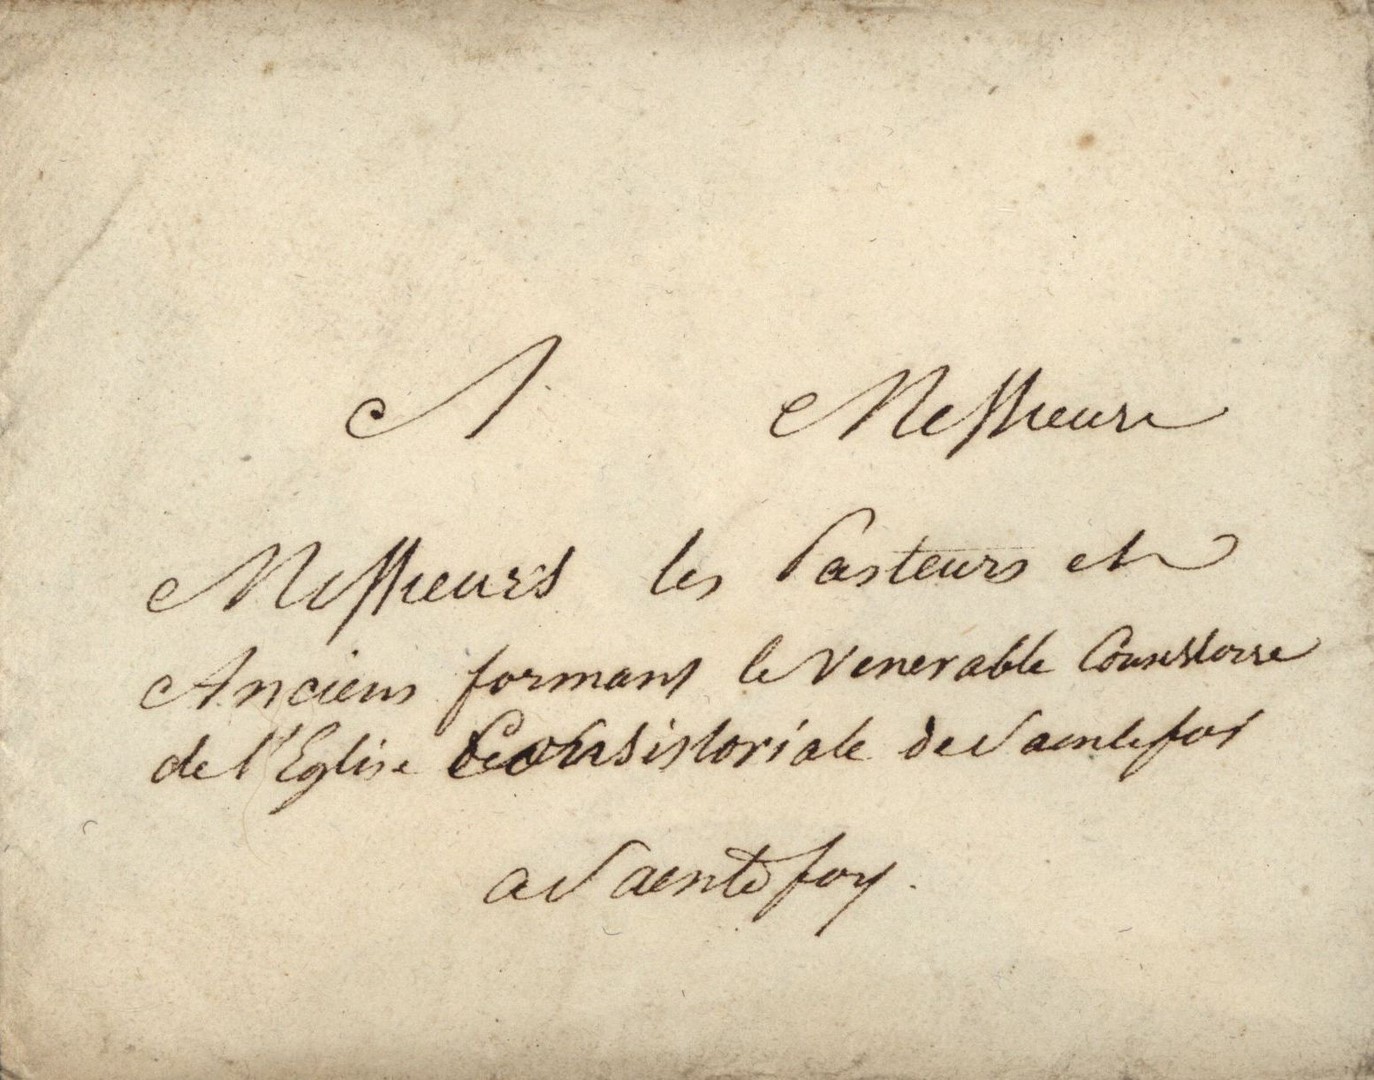 A Messieurs
Messieurs les Pasteurs et
Anciens formant le Venerable Consistoire
de l'Eglise Consistoriale de Saintefoy
a Saintefoy.